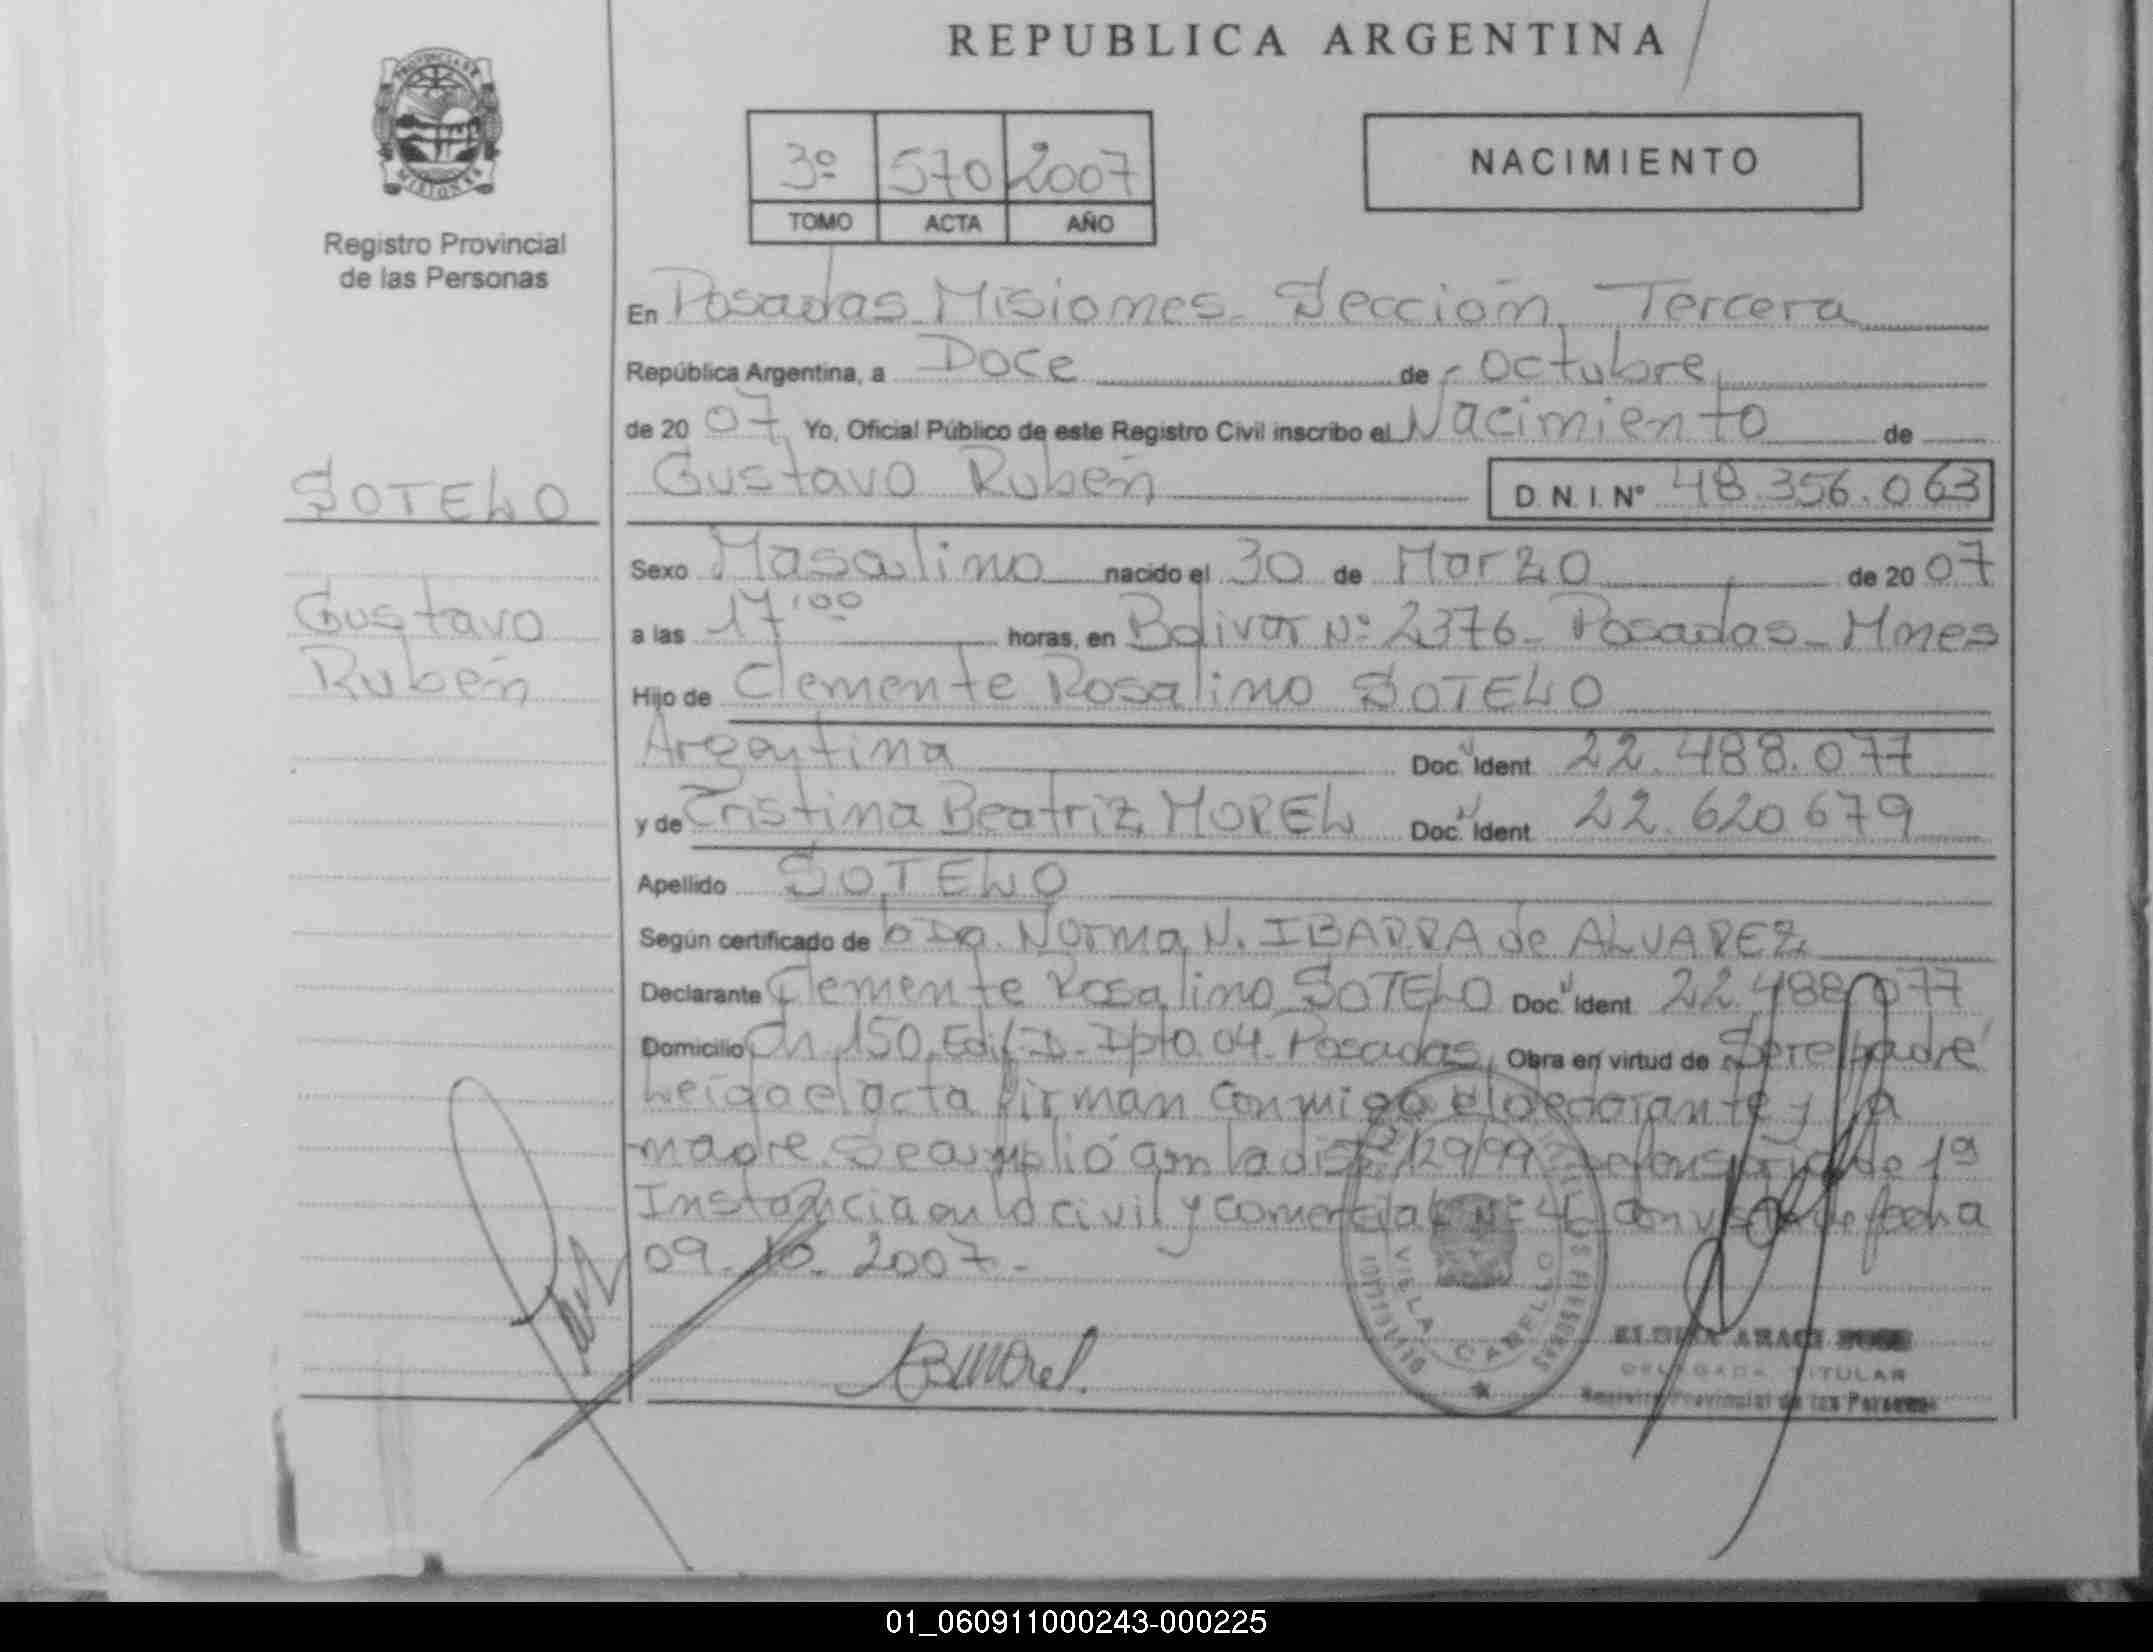 REPUBLICA ARGENTINA
PROVINCIA DE
MISIONES
Registro Provincial
de las Personas
3º 570 2007
TOMO ACTA AÑO
NACIMIENTO
En Posadas Misiones. Sección Tercera
República Argentina, a Doce de Octubre
de 2007 Yo, Oficial Público de este Registro Civil inscribo el Nacimiento de
SOTELO
Gustavo Rubén D.N.I. Nº 48.356.063
Sexo Masculino nacido el 30 de Marzo de 2007
Gustavo
a las 17'00 horas, en Bolivar Nº 2376 - Posadas - Mnes
Rubén
Hijo de Clemente Rosalino SOTELO
Argentina Doc. Ident. 22.488.077
y de Cristina Beatriz MOREL Doc. Ident. 22.620679
Apellido SOTELO
Según certificado de Norma N. IBARRA de ALVAREZ
Declarante Clemente Rosalino SOTELO Doc. Ident. 22.488077
Domicilio Ch 150. Edif D. Dpto. 04. Posadas Obra en virtud de Ser el padre
Leída el acta firman conmigo el declarante y la
madre. Se cumplió con la 129/99 de 1ª
Instancia en lo civil y comercial Nº 4 de fecha
09.10.2007.-
VILLA CABELLO
DELEGADA TITULAR
Registro Provincial de las Personas
01_060911000243-000225